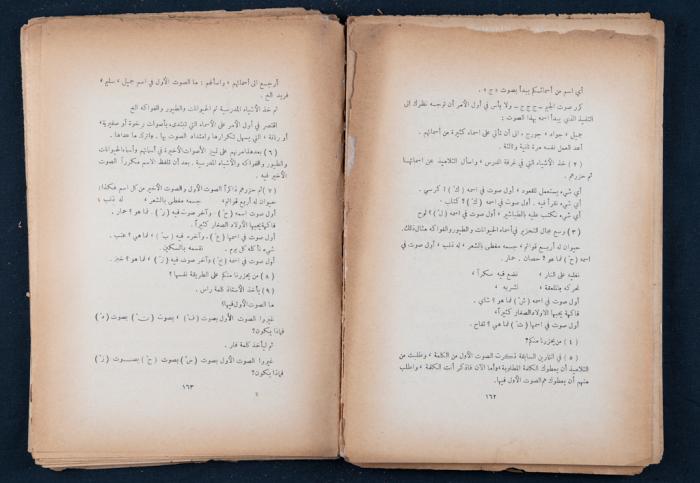 أي اسم من أسمائكم يبدأ بصوت « ج » .
كرر صوت الجيم – ج ج ج – ولا بأس في أول الأمر أن توجه نظرك الى
التلميذ الذي يبدأ اسمه بهذا الصوت :
جميل ، جواد ، جورج ، الى أن تأتي على أسماء كثيرة من أسمائهم .
أعد العمل نفسه مرة ثانية وثالثة .
( ٢ ) خذ الأشياء التي في غرفة الدرس ، واسأل التلاميذ عن اسمائهــا
ثم حزرهم .
أي شيء يستعمل للقعود ، أول صوت في اسمه ( كْ ) ؟ كرسي .
أي شيء نقرأ فيه . أول صوت في اسمه ( كْ ) ؟ كتاب .
أي شيء نكتب عليه بالطباشير ، أول صوت في اسمه ( لْ ) ؟ لوح
( ٣ ) وسع مجال التحزير في أسماء الحيوانات والطيور والفواكه مثال ذلك .
حيوان له أربع قوائم ، جسمه مغطى بالشعر ، له ذنب ، أول صوت في
اسمه ( حْ ) فما هو ؟ حصان . حمار .
نغليه على النار ، نضع فيه سكراً ،
نحركه بالملعقة ، نشربه ،
أول صوت في اسمه ( شْ ) فما هو ؟ شاي .
فاكهة يحبها الاولاد الصغار كثيراً ،
أول صوت في اسمها ( تْ ) فما هي ؟ تفاح .
( ٤ ) من يحزرنا منكم؟
( ٥ ) في التمارين السابقة ذكرت الصوت الأول من الكلمة ، وطلبت من
التلاميذ أن يعطوك الكلمة المطلوبة ، وأما الآن فاذكر أنت الكلمة ، واطلب
منهم أن يعطوك هم الصوت الأول فيها.
١٦٢
أو رجع الى أسمائهم ، واسألهم : ما الصوت الأول في اسم جميل ، سليم ،
فريد الخ .
ثم خذ الأشياء المدرسية ثم الحيوانات والطيور والفواكه الخ
اقتصر في أول الأمر على الأسماء التي تبتدىء بأصوات رخوة أو صفيرية ،
أو رنانة ، التي يسهل تكرارها وامتداد الصوت بها . واترك ما عداها .
( ٦ ) بعد هذا مرنهم على تمييز الأصوات الأخيرة في أسمائهم وأسماء الحيوانات
والطيور والفواكه والأشياء المدرسية . بعد أن تلفظ الاسم مكرراً الصوت
الأخير فيه .
( ٧ ) ثم حزرهم ذاكراً الصوت الأول والصوت الأخير من كل اسم هكذا:
حيوان له أربع قوائم ، جسمه مغطى بالشعر ، له ذنب ،
أول صوت اسمه ( حْ ) وآخر صوت فيه ( رْ ) . فما هو ؟ حمار .
فاكهة يحبها الأولاد الصغار كثيراً .
أول صوت في اسمها ( عْ ) . وآخره فيه ( بْ ) ، فما هي ؟ عنب .
شيء نأكله كل يوم . نقسمه بالسكين .
أول صوت في اسمه ( خْ ) وآخر صوت فيه ( زْ ) ، فما هو ؟ خبز .
( ٨ ) من يحزرنا منكم على الطريقة نفسها ؟
( ٩ ) يأخذ الأستاذ كلمة راس .
ما الصوت الأول فيها؟
غيروا الصوت الأول بصوت ( فْ ) ، بصوت
فماذا يتكون؟
ثم ليأخذ كلمة فار .
غيروا الصوت الأول بصوت
فماذا يتكون؟
١٦٣